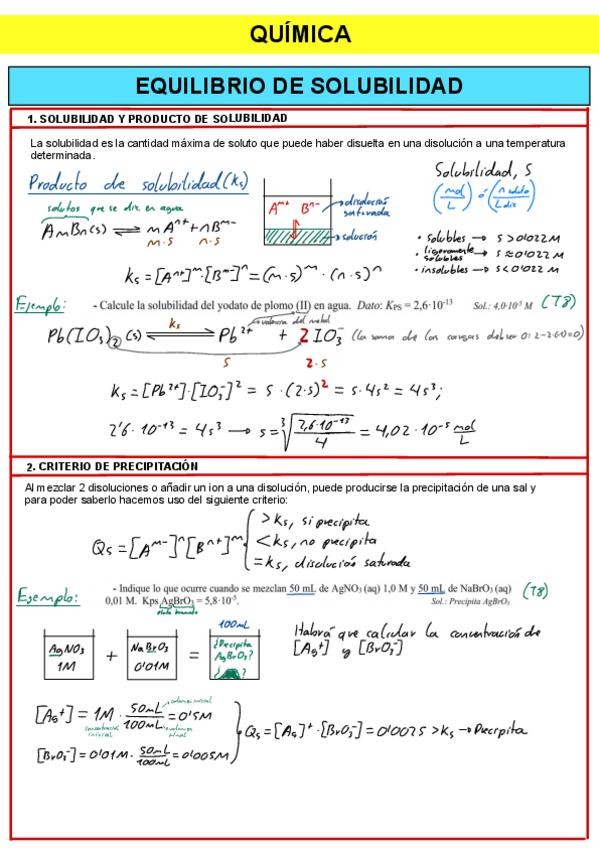 QUÍMICA
EQUILIBRIO DE SOLUBILIDAD
1. SOLUBILIDAD Y PRODUCTO DE SOLUBILIDAD
La solubilidad es la cantidad máxima de soluto que puede haber disuelta en una disolución a una temperatura
determinada.
Producto de solubilidad (ks)
solutos que se dis. en agua
AmBn(s) ⇌ mA^n+ + nB^m-
m·s n·s
A^m+ B^n-
disolución
saturada
solución
Solubilidad, S
(mol/L) ó (n soluto/L dis)
• solubles → S > 0'022 M
• ligeramente
solubles → S ≈ 0'022 M
• insolubles → S < 0'022 M
ks = [A^n+]^m · [B^m-]^n = (m·s)^m · (n·s)^n
Ejemplo:
- Calcule la solubilidad del yodato de plomo (II) en agua. Dato: KPS = 2,6·10^-13 Sol.: 4,0·10^-5 M (T8)
valencia del metal
Pb(IO3)2 (s) ⇌ks Pb^2+ + 2IO3^- (la suma de las cargas debe ser 0: 2-2·(1)=0)
s 2·s
ks = [Pb^2+]·[IO3^-]^2 = s·(2·s)^2 = s·4s^2 = 4s^3;
2'6·10^-13 = 4s^3 → s = ∛(2,6·10^-13/4) = 4,02·10^-5 mol/L
2. CRITERIO DE PRECIPITACIÓN
Al mezclar 2 disoluciones o añadir un ion a una disolución, puede producirse la precipitación de una sal y
para poder saberlo hacemos uso del siguiente criterio:
Qs = [A^m-]^n [B^n+]^m
> ks, si precipita
< ks, no precipita
= ks, disolución saturada
Ejemplo:
- Indique lo que ocurre cuando se mezclan 50 mL de AgNO3 (aq) 1,0 M y 50 mL de NaBrO3 (aq)
0,01 M. Kps AgBrO3 = 5,8·10^-5. Sol.: Precipita AgBrO3 (T8)
100mL
AgNO3
1M
+
NaBrO3
0'01M
=
¿Precipita
AgBrO3?
Habrá que calcular la concentración de
[Ag+] y [BrO3^-]
[Ag+] = 1M · 50mL/100mL = 0'5M
volumen inicial
concentración
inicial
volumen
final
[BrO3^-] = 0'01M · 50mL/100mL = 0'005M
Qs = [Ag]^+ · [BrO3^-] = 0'0025 > ks → Precipita